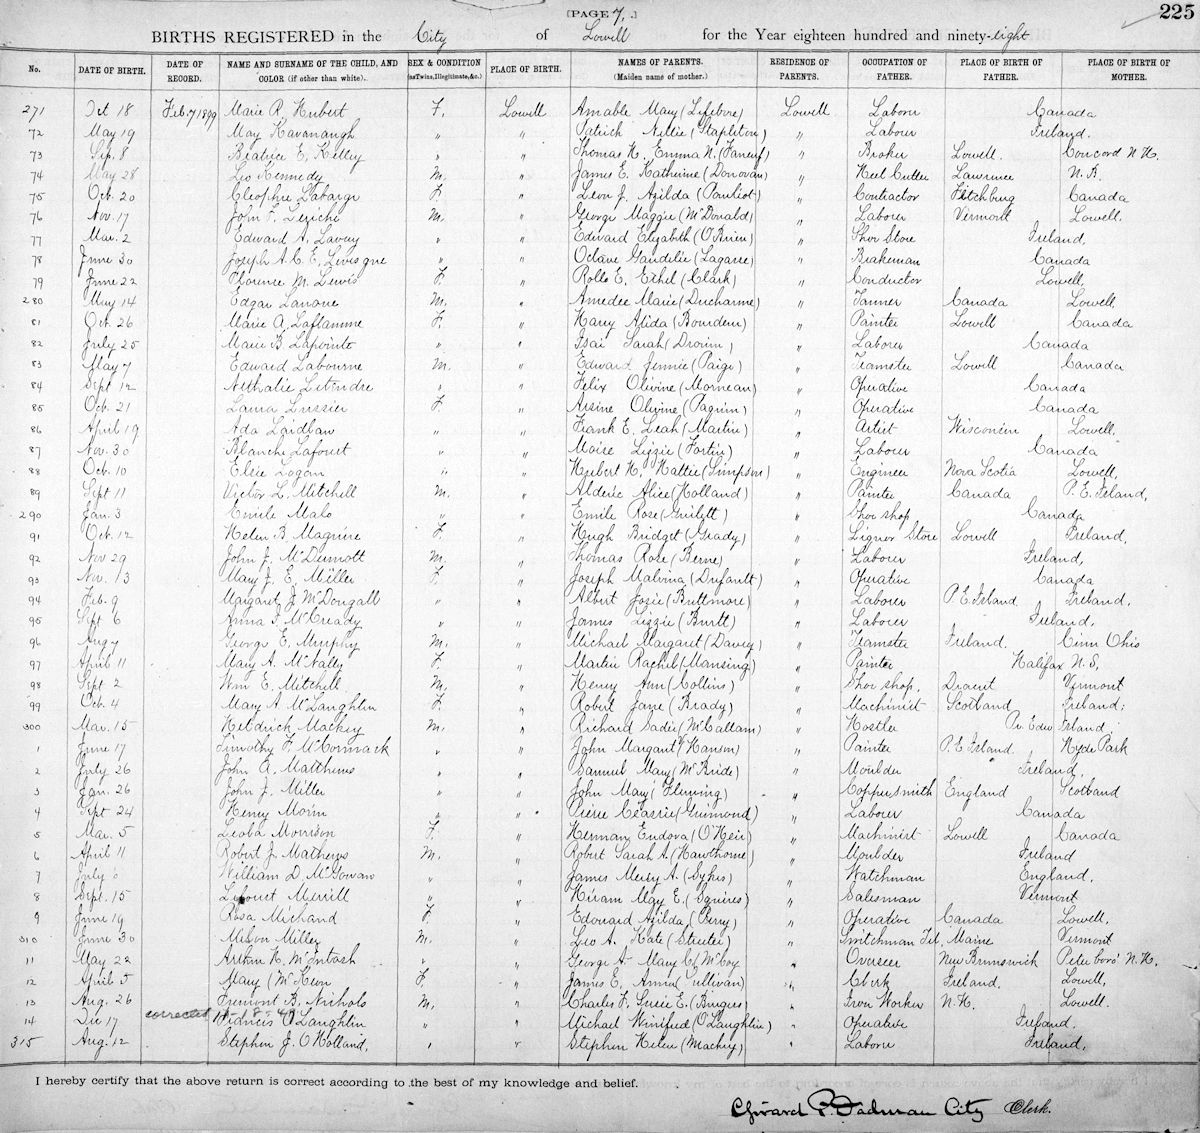 [PAGE 7.] 225
BIRTHS REGISTERED in the City of Lowell for the Year eighteen hundred and ninety-eight
No. DATE OF BIRTH. DATE OF RECORD. NAME AND SURNAME OF THE CHILD, AND COLOR (if other than white). SEX & CONDITION (as Twins, Illegitimate, &c.) PLACE OF BIRTH. NAMES OF PARENTS. (Maiden name of mother.) RESIDENCE OF PARENTS. OCCUPATION OF FATHER. PLACE OF BIRTH OF FATHER. PLACE OF BIRTH OF MOTHER.
271 Oct 18 Feb 7 1899 Marie R. Hubert F. Lowell Amable Mary (Lefebvre) Lowell Laborer Canada
72 May 19 May Kavanaugh " " Patrick Nellie (Stapleton) " Laborer Ireland.
73 Sep. 8 Beatrice E. Kelley " " Thomas H. Emma N. (Faneuf) " Broker Lowell. Concord N.H.
74 May 28 Leo Kennedy M. " James E. Katherine (Donovan) " Heel Cutter Lawrence N.B.
75 Oct. 20 Cleophee Labarge F. " Leon J. Azilda (Pouliot) " Contractor Fitchburg Canada
76 Nov. 17 John F. M. " George Maggie (McDonald) " Laborer Vermont Lowell.
77 Mar. 2 Edward A. Lavery " " Edward Elizabeth (O'Brien) " Shoe Store Ireland.
78 June 30 Joseph A. C. E. Levesque " " Octave (Lagasse) " Brakeman Canada
79 June 22 Florence M. Lewis F. " Rollo E. Ethel (Clark) " Conductor Lowell.
280 May 14 Edgar Lanoue M. " Amedee Marie (Ducharme) " Tanner Canada Lowell.
81 Oct. 26 Marie A. Laflamme F. " Harry Alida (Bourdeau) " Painter Lowell Canada
82 July 25 Marie B. Lapointe " " Isai Sarah (Drouin) " Laborer Canada
83 May 7 Edward Labourne M. " Edward Jennie (Paige) " Teamster Lowell Canada
84 Sept 12 Nathalie Letendre " " Felix Olivine (Morneau) " Operative Canada
85 Oct. 21 Laura Lussier F. " Arsine Olivine (Paquin) " Operative Canada
86 April 19 Ada Laidlaw " " Frank E. Leah (Martin) " Artist Wisconsin Lowell.
87 Nov. 30 Blanche Lafoust " " Moise Lizzie (Fortin) " Laborer Canada
88 Oct. 10 Elsie Logan " " Hubert H. Hattie (Simpson) " Engineer Nova Scotia Lowell.
89 Sept 11 Victor L. Mitchell M. " Alderic Alice (Holland) " Painter Canada P. E. Island.
290 Jan. 3 Emile Malo " " Emile Rose (Guilett) " Shoe shop Canada
91 Oct. 12 Helen B. Maguire F. " Hugh Bridget (Grady) " Liquor Store Lowell Ireland.
92 Nov 29 John J. McDermott M. " Thomas Rose (Berne) " Laborer Ireland.
93 Nov. 13 Mary J. E. Miller F. " Joseph Malvina (Dufault) " Operative Canada
94 Feb. 9 Margaret J. McDougall " " Albert Josie (Buttimore) " Laborer P. E. Island Ireland.
95 Sept 6 Anna F. McCready " " James Lizzie (Burtt) " Laborer Ireland.
96 Aug 7 George E. Murphy M. " Michael Margaret (Davey) " Teamster Ireland. Cinn Ohio
97 April 11 Mary A. McNally F. " Martin Rachel (Mansing) " Painter Halifax N. S.
98 Sept. 2 Wm E. Mitchell M. " Henry Ann (Collins) " Shoe shop. Dracut Vermont
99 Oct. 4 Mary A. McLaughlin F. " Robert Jane (Brady) " Machinist Scotland Ireland.
300 Mar. 15 Heldrick Mackey M. " Richard Sadie (McCallam) " Hostler Pr. Edw Island
1 June 17 Timothy F. McCormack " " John Margaret (Hanson) " Painter P. E Island Hyde Park
2 July 26 John A. Matthews " " Samuel Mary (McBride) " Moulder Ireland.
3 Jan. 26 John J. Miller " " John Mary (Fleming) " Coppersmith England Scotland
4 Sept 24 Henry Morin " " Pierre (Guimond) " Laborer Canada
5 Mar. 5 Leoba Morrison F. " Herman Eudora (O'Heir) " Machinist Lowell Canada
6 April 11 Robert J. Mathews M. " Robert Sarah A. (Hawthorne) " Moulder Ireland
7 July 8 William D. McGowan " " James Mercy A. (Sykes) " Watchman England.
8 Sept. 15 Merrill " " Hiram May E. (Squires) " Salesman Vermont
9 June 19 Rosa Michaud F. " Edouard Azilda (Perry) " Operative Canada Lowell.
310 June 30 Milson Miller M. " Leo A. Kate (Streeter) " Switchman Tel. Maine Vermont
11 May 22 Arthur H. McIntosh " " George A. Mary C. (McCoy " Overseer New Brunswick Peterboro' N.H.
12 April 5 Mary (McKeon F. " James E. Anna (Sullivan) " Clerk Ireland. Lowell.
13 Aug. 26 Fremont B. Nichols M. " Charles F. Susie E. (Burgess) " Iron Worker N. H. Lowell.
14 Dec 17 corrected 11-18-48 Francis O'Laughlin " " Michael Winifred (O'Laughlin) " Operative Ireland.
315 Aug. 12 Stephen J. O'Holland. " " Stephen Helen (Mackey) " Laborer Ireland.
I hereby certify that the above return is correct according to the best of my knowledge and belief.
Girard P. Dadman City Clerk.